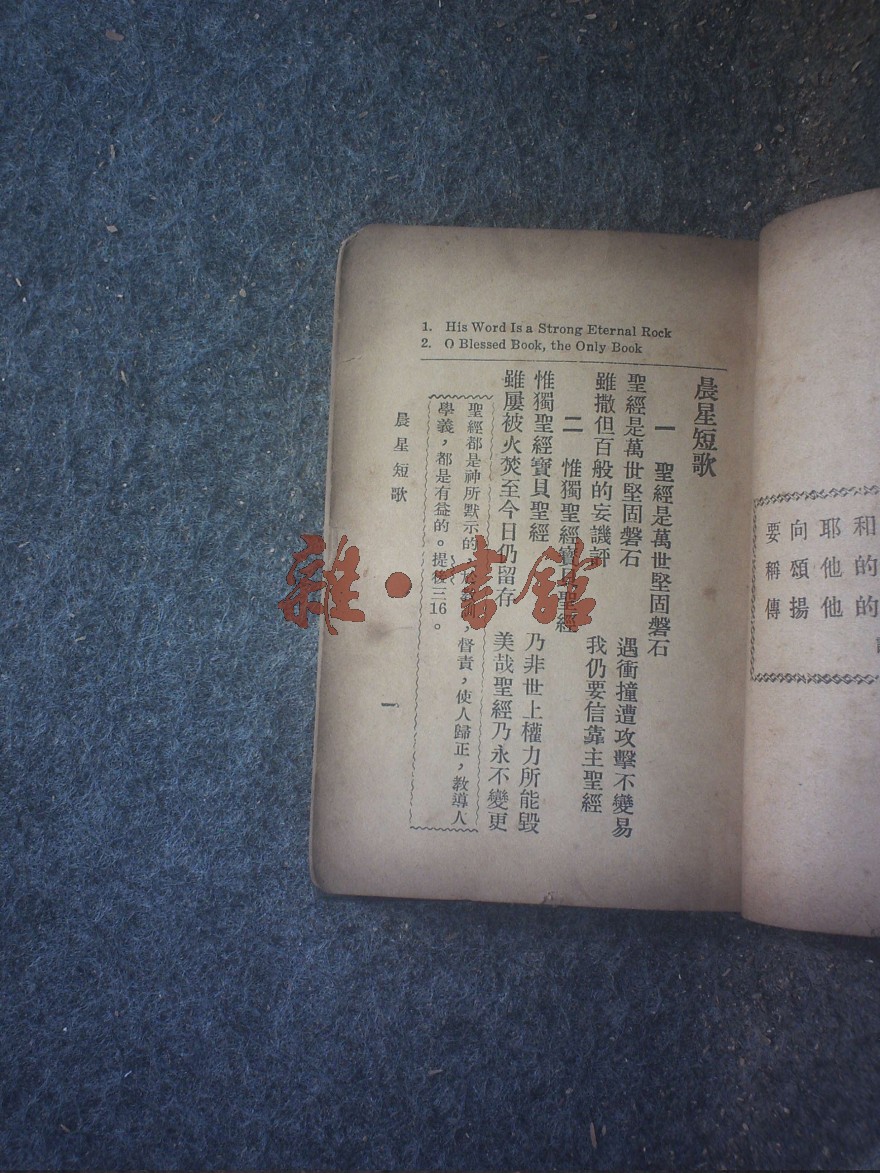 1. His Word Is a Strong Eternal Rock
2. O Blessed Book, the Only Book
晨星短歌
一 聖經是萬世堅固磐石
聖經是萬世堅固磐石 遇衝撞遭攻擊不變易
雖撒但百般的妄譏評 我仍要信靠主聖經
二 惟獨聖經寶貝聖經
惟獨聖經寶貝聖經 乃非世上權力所能毀
雖屢被火焚至今日仍留存 美哉聖經乃永不變更
聖經都是神所默示的,督責,使人歸正,教導人
學義,都是有益的。提後三16。
晨星短歌
一
和
耶他的
向頌他的
要稱傳揚
雜·書館